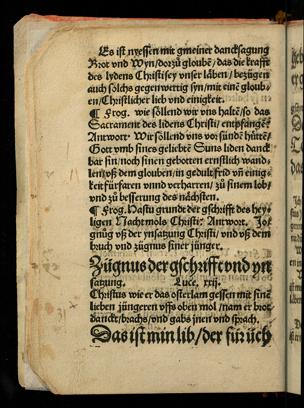 Es ist nyessen mit gmeiner dancksagung
Brot vnd Wyn/dorzů gloubē/das die krafft
des lydens Christi sey vnser läben/bezügen
auch sölchs gegenwertig syn/mit einē gloub-
en/Christlicher lieb vnd einigkeit.
¶ Frog. wie söllend wir vns haltē/so das
Sacrament des lidens Christi/empfangēs
Antwort Wir söllend vns vor sünd hůttē/
Gott vmb sines geliebtē Suns liden danck
bar sin/noch sinen gebotten ernstlich wand-
len/vß dem glouben/in gedult frid vñ einig-
keit fürfaren vnnd verharren/zů sinem lob/
vnd zů besserung des nächsten.
¶ Frog. Hastu grund der gschrifft des hey-
ligen Nachtmols Christi? Antwort. Jo/
gnůg vß der ynsatzung Christi/vnd vß dem
bruch vnd zügnus siner jünger.
Zügnus der gschrifft vnd yn
satzung. Luce. xxij.
Christus wie er das osterlam gessen mit sinē
lieben jüngeren vffs oben mol/nam er brot
danckt/brachs/vnd gabs jnen vnd sprach.
Das ist min lib/der für üch